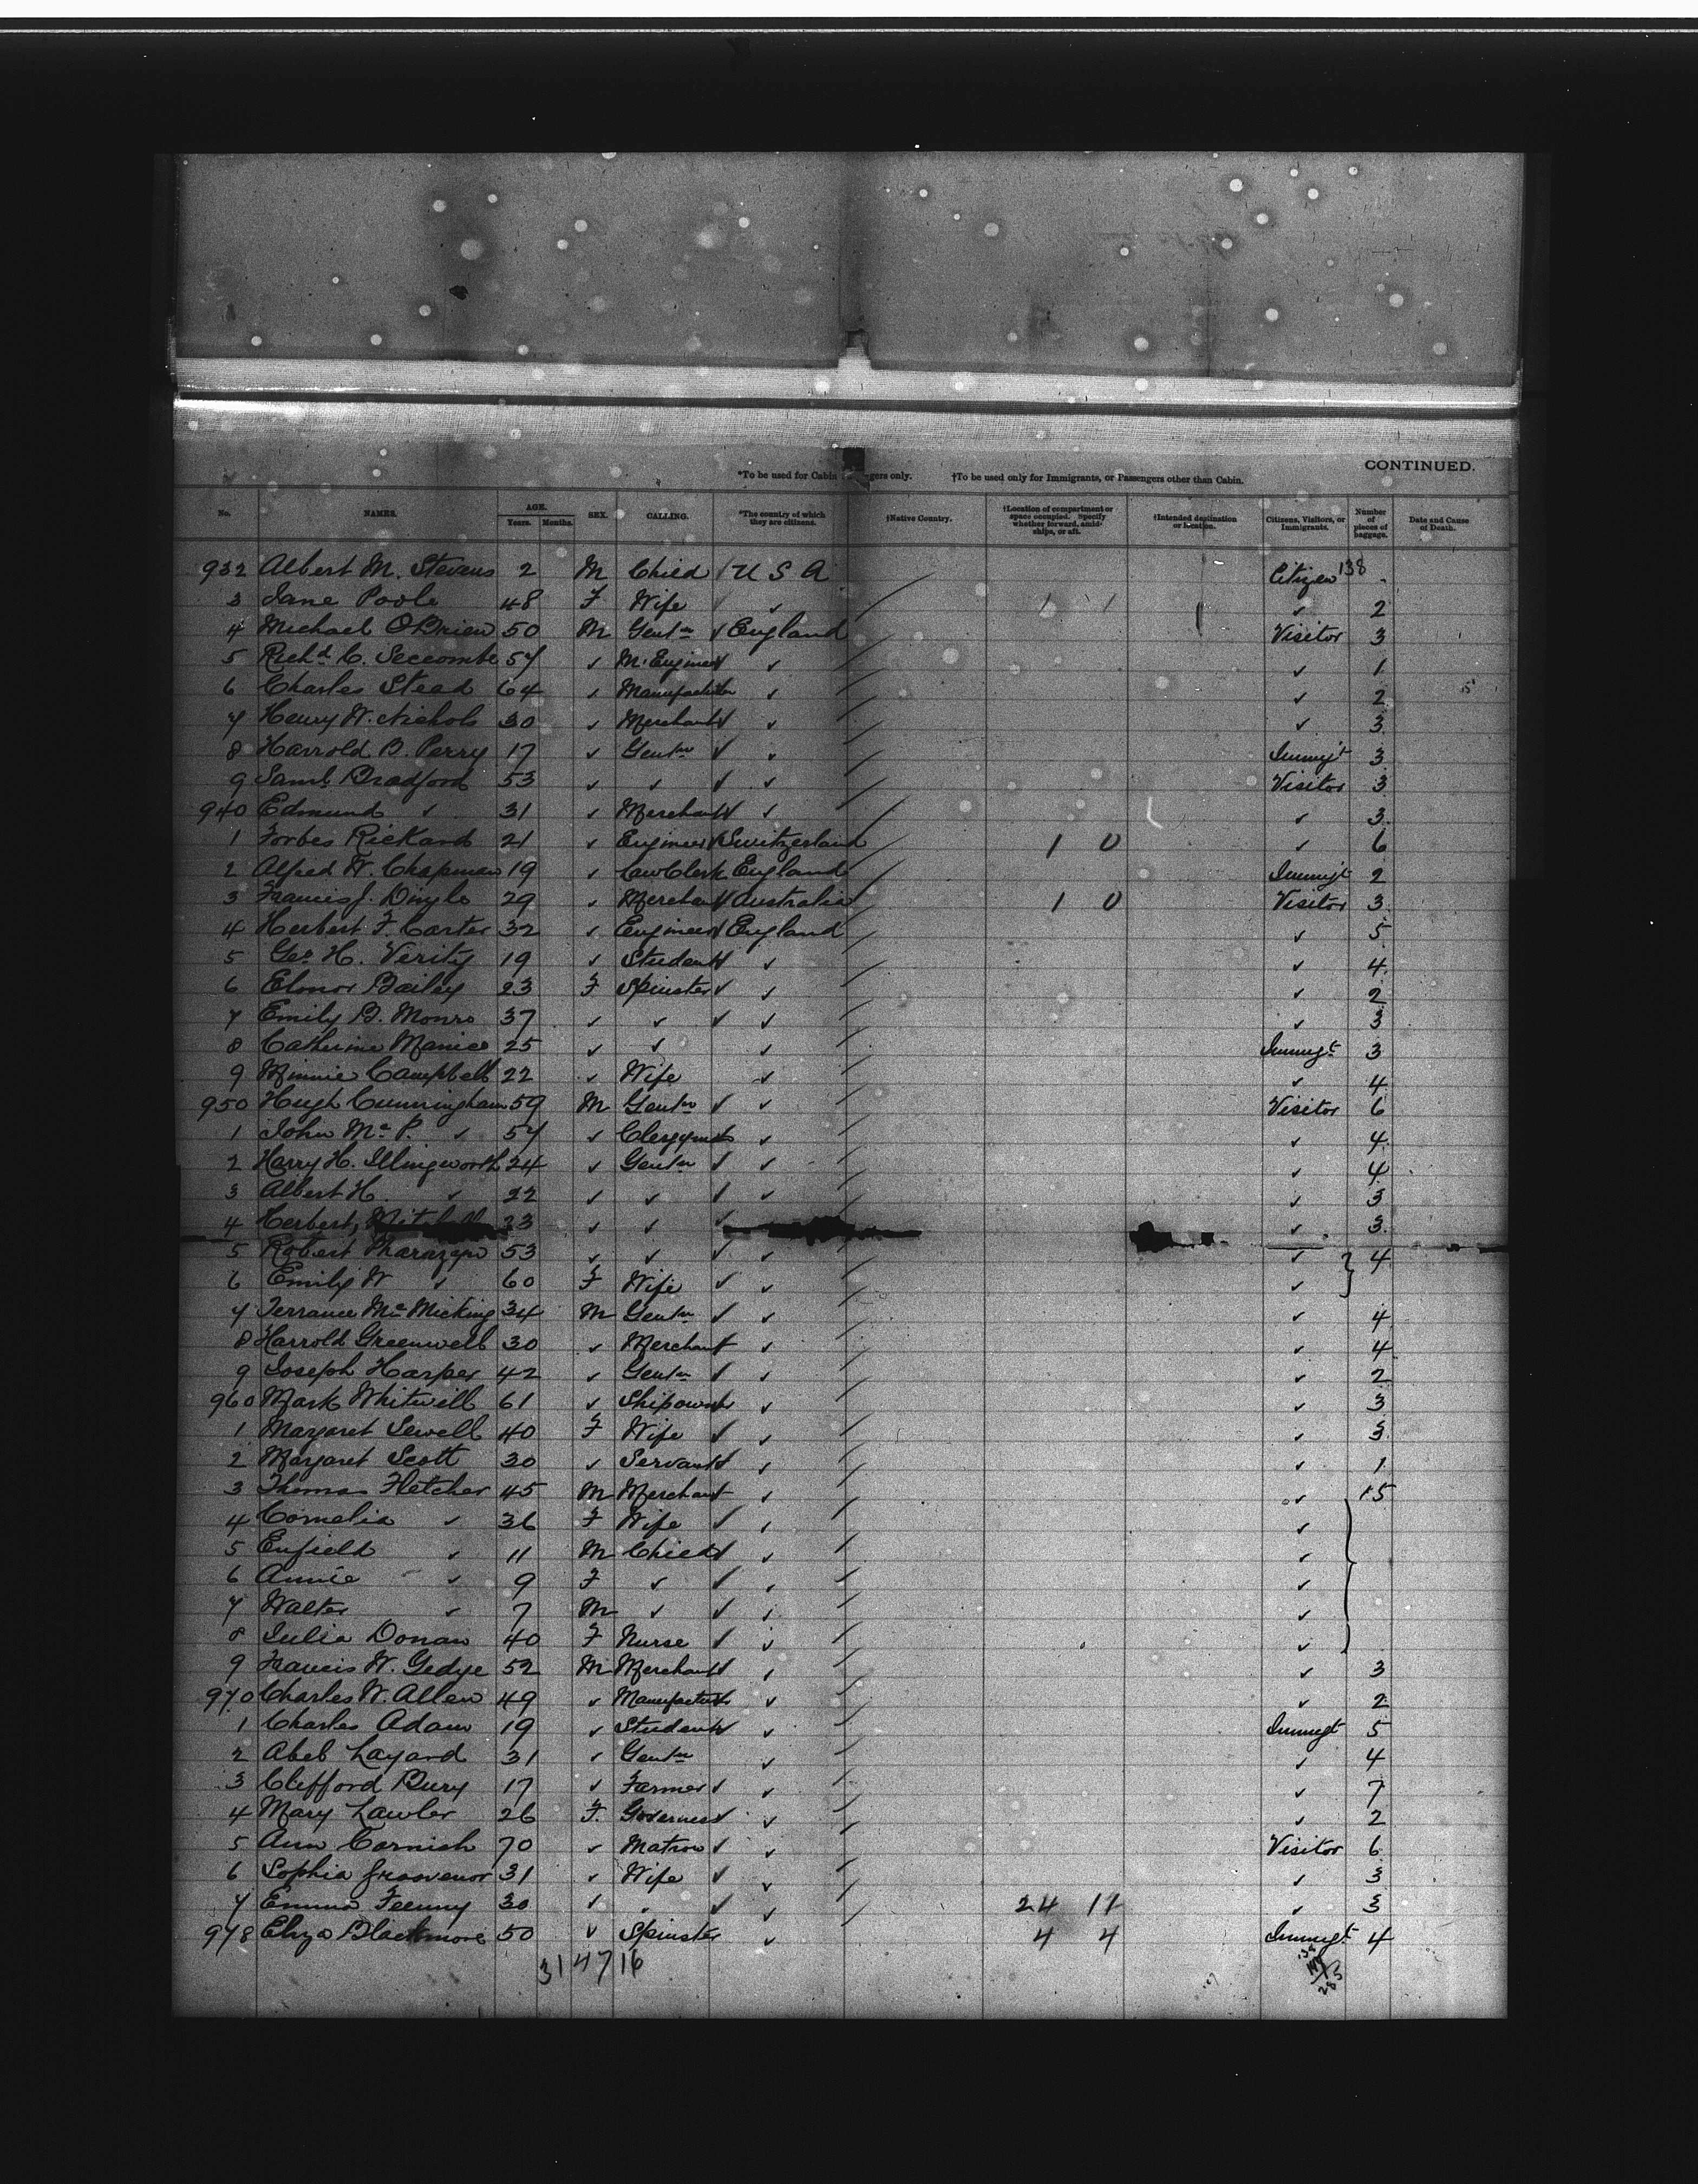 CONTINUED.
*To be used for Cabin gers only. †To be used only for Immigrants, or Passengers other than Cabin.
No. NAMES. AGE. Years. Months. SEX. CALLING. *The country of which they are citizens. †Native Country. †Location of compartment or space occupied. Specify whether forward, amidships, or aft. †Intended destination or location. Citizens, Visitors, or Immigrants. Number of pieces of baggage. Date and Cause of Death.
932 Albert M. Stevens 2 M Child / U S A Citizen 138
3 Jane Poole 48 F Wife ✓ 1 1 ✓ 2
4 Michael OBrien 50 M Gentn ✓ England Visitor 3
5 Richd C. Seccombe 57 ✓ M. Engineer ✓ ✓ 1
6 Charles Stead 64 ✓ Manufacturer ✓ ✓ 2
7 Henry W. Nichols 30 ✓ Merchant ✓ ✓ 3
8 Harrold B. Perry 17 ✓ Gentn ✓ ✓ Immigt 3
9 Saml Bradford 53 ✓ ✓ ✓ ✓ Visitor 3
940 Edmund ✓ 31 ✓ Merchant ✓ ✓ 3
1 Forbes Rickard 21 ✓ Engineer ✓ Switzerland 1 0 ✓ 6
2 Alfred W. Chapman 19 ✓ Law Clerk England Immigt 2
3 Francis J. Dingle 29 ✓ Merchant ✓ Australia 1 0 Visitor 3
4 Herbert F. Carter 32 ✓ Engineer ✓ England ✓ 5
5 Geo H. Verity 19 ✓ Student ✓ ✓ 4
6 Elonor Bailey 23 F Spinster ✓ ✓ ✓ 2
7 Emily B. Monro 37 ✓ ✓ ✓ ✓ ✓ 3
8 Catherine Manice 25 ✓ ✓ ✓ Immigt 3
9 Minnie Campbell 22 ✓ Wife ✓ ✓ 4
950 Hugh Cunningham 59 M Gentn ✓ ✓ Visitor 6
1 John Mc P. ✓ 57 ✓ Clergyman ✓ ✓ 4
2 Harry H. Illingworth 24 ✓ Gentn ✓ ✓ ✓ 4
3 Albert H. ✓ 22 ✓ ✓ ✓ ✓ ✓ 3
4 Herbert Mitchell 23 ✓ ✓ ✓ ✓ 3
5 Robert Tharazyn 53 ✓ ✓ ✓ ✓ ✓ 4
6 Emily W ✓ 60 F Wife ✓ ✓ ✓
7 Terrance Mc Micking 34 M Gentn ✓ ✓ ✓ 4
8 Harrold Greenwell 30 ✓ Merchant ✓ ✓ 4
9 Joseph Harper 42 ✓ Gentn ✓ ✓ ✓ 2
960 Mark Whitwill 61 ✓ Shipowner ✓ ✓ 3
1 Margaret Sewell 40 F Wife ✓ ✓ ✓ 3
2 Margaret Scott 30 ✓ Servant ✓ ✓ ✓ 1
3 Thomas Fletcher 45 M Merchant ✓ ✓ 15
4 Cornelia ✓ 36 F Wife ✓ ✓ ✓
5 Enfield ✓ 11 M Child ✓ ✓ ✓
6 Annie ✓ 9 F ✓ ✓ ✓ ✓
7 Walter ✓ 7 M ✓ ✓ ✓ ✓
8 Julia Donan 40 F Nurse ✓ ✓ ✓
9 Francis W. Gedye 52 M Merchant ✓ ✓ ✓ 3
970 Charles W. Allen 49 ✓ Manufacturer ✓ ✓ 2
1 Charles Adam 19 ✓ Student ✓ ✓ Immigt 5
2 Abel Layard 31 ✓ Gentn ✓ ✓ 4
3 Clifford Bury 17 ✓ Farmer ✓ ✓ ✓ 7
4 Mary Lawler 26 F. Governess ✓ ✓ 2
5 Ann Cornish 70 ✓ Matron ✓ ✓ Visitor 6
6 Sophia Grosvenor 31 ✓ Wife ✓ ✓ ✓ 3
7 Emma Feenny 30 ✓ ✓ ✓ ✓ 24 11 ✓ 3
978 Eliza Blackmore 50 ✓ Spinster ✓ 4 4 Immigt 4
31 47 16